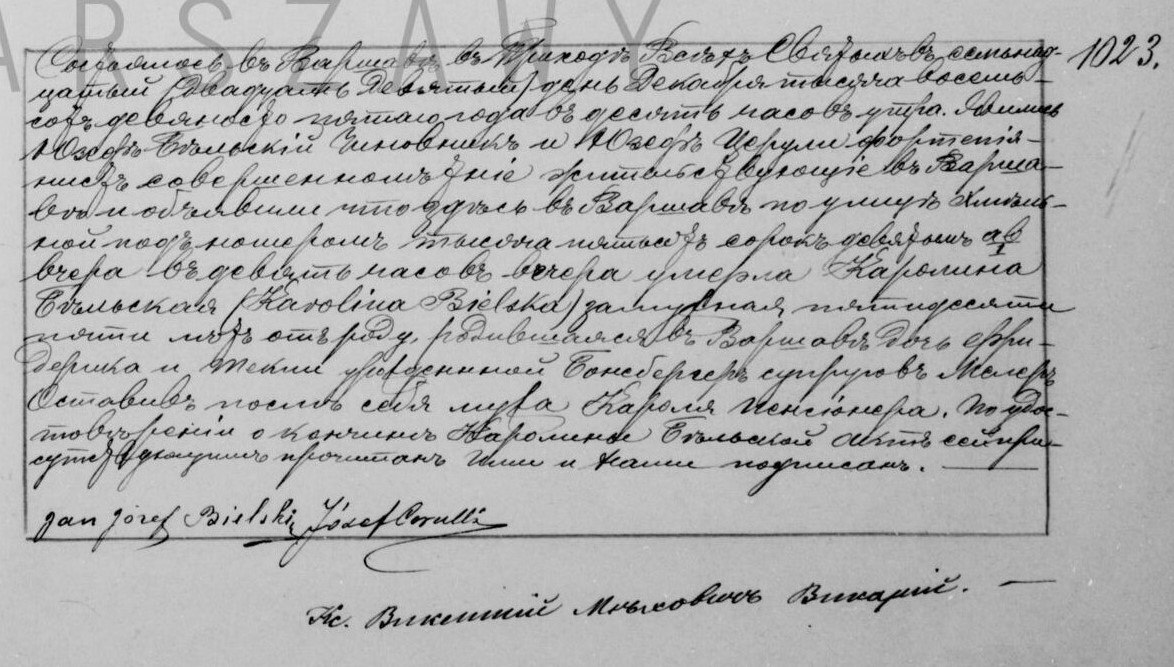 ARSZAWY
Состоялось въ Варшавѣ въ Приходѣ Всѣхъ Святыхъ въ семьнад- 1023.
цатый (Двадцать Девятый) день Декабря тысяча восемь-
сотъ девяносто пятаго года въ десять часовъ утра. Явились
Юзефъ Бѣльскій Чиновникъ и Юзефъ Церули фортепія-
нистъ совершеннолѣтніе жительствующіе въ Варша-
вѣ и объявили что здѣсь въ Варшавѣ по улицѣ Хмѣль-
ной подъ номеромъ тысяча пятьсотъ сорокъ девятомъ
вчера въ девять часовъ вечера умерла Каролина
Бѣльская (Karolina Bielska) замужная пятидесяти
пяти лѣтъ отъ роду, родившаяся въ Варшавѣ дочь Фри-
дерика и Текли урожденной супруговъ
Оставивъ послѣ себя мужа Кароля пенсіонера. По удос-
товѣреніи о кончинѣ Каролины Бѣльской актъ сей при-
сутствующимъ прочитанъ ими и Нами подписанъ.
Jan Józef Bielski Józef Cerulli
Кс. Викентій Викарій.